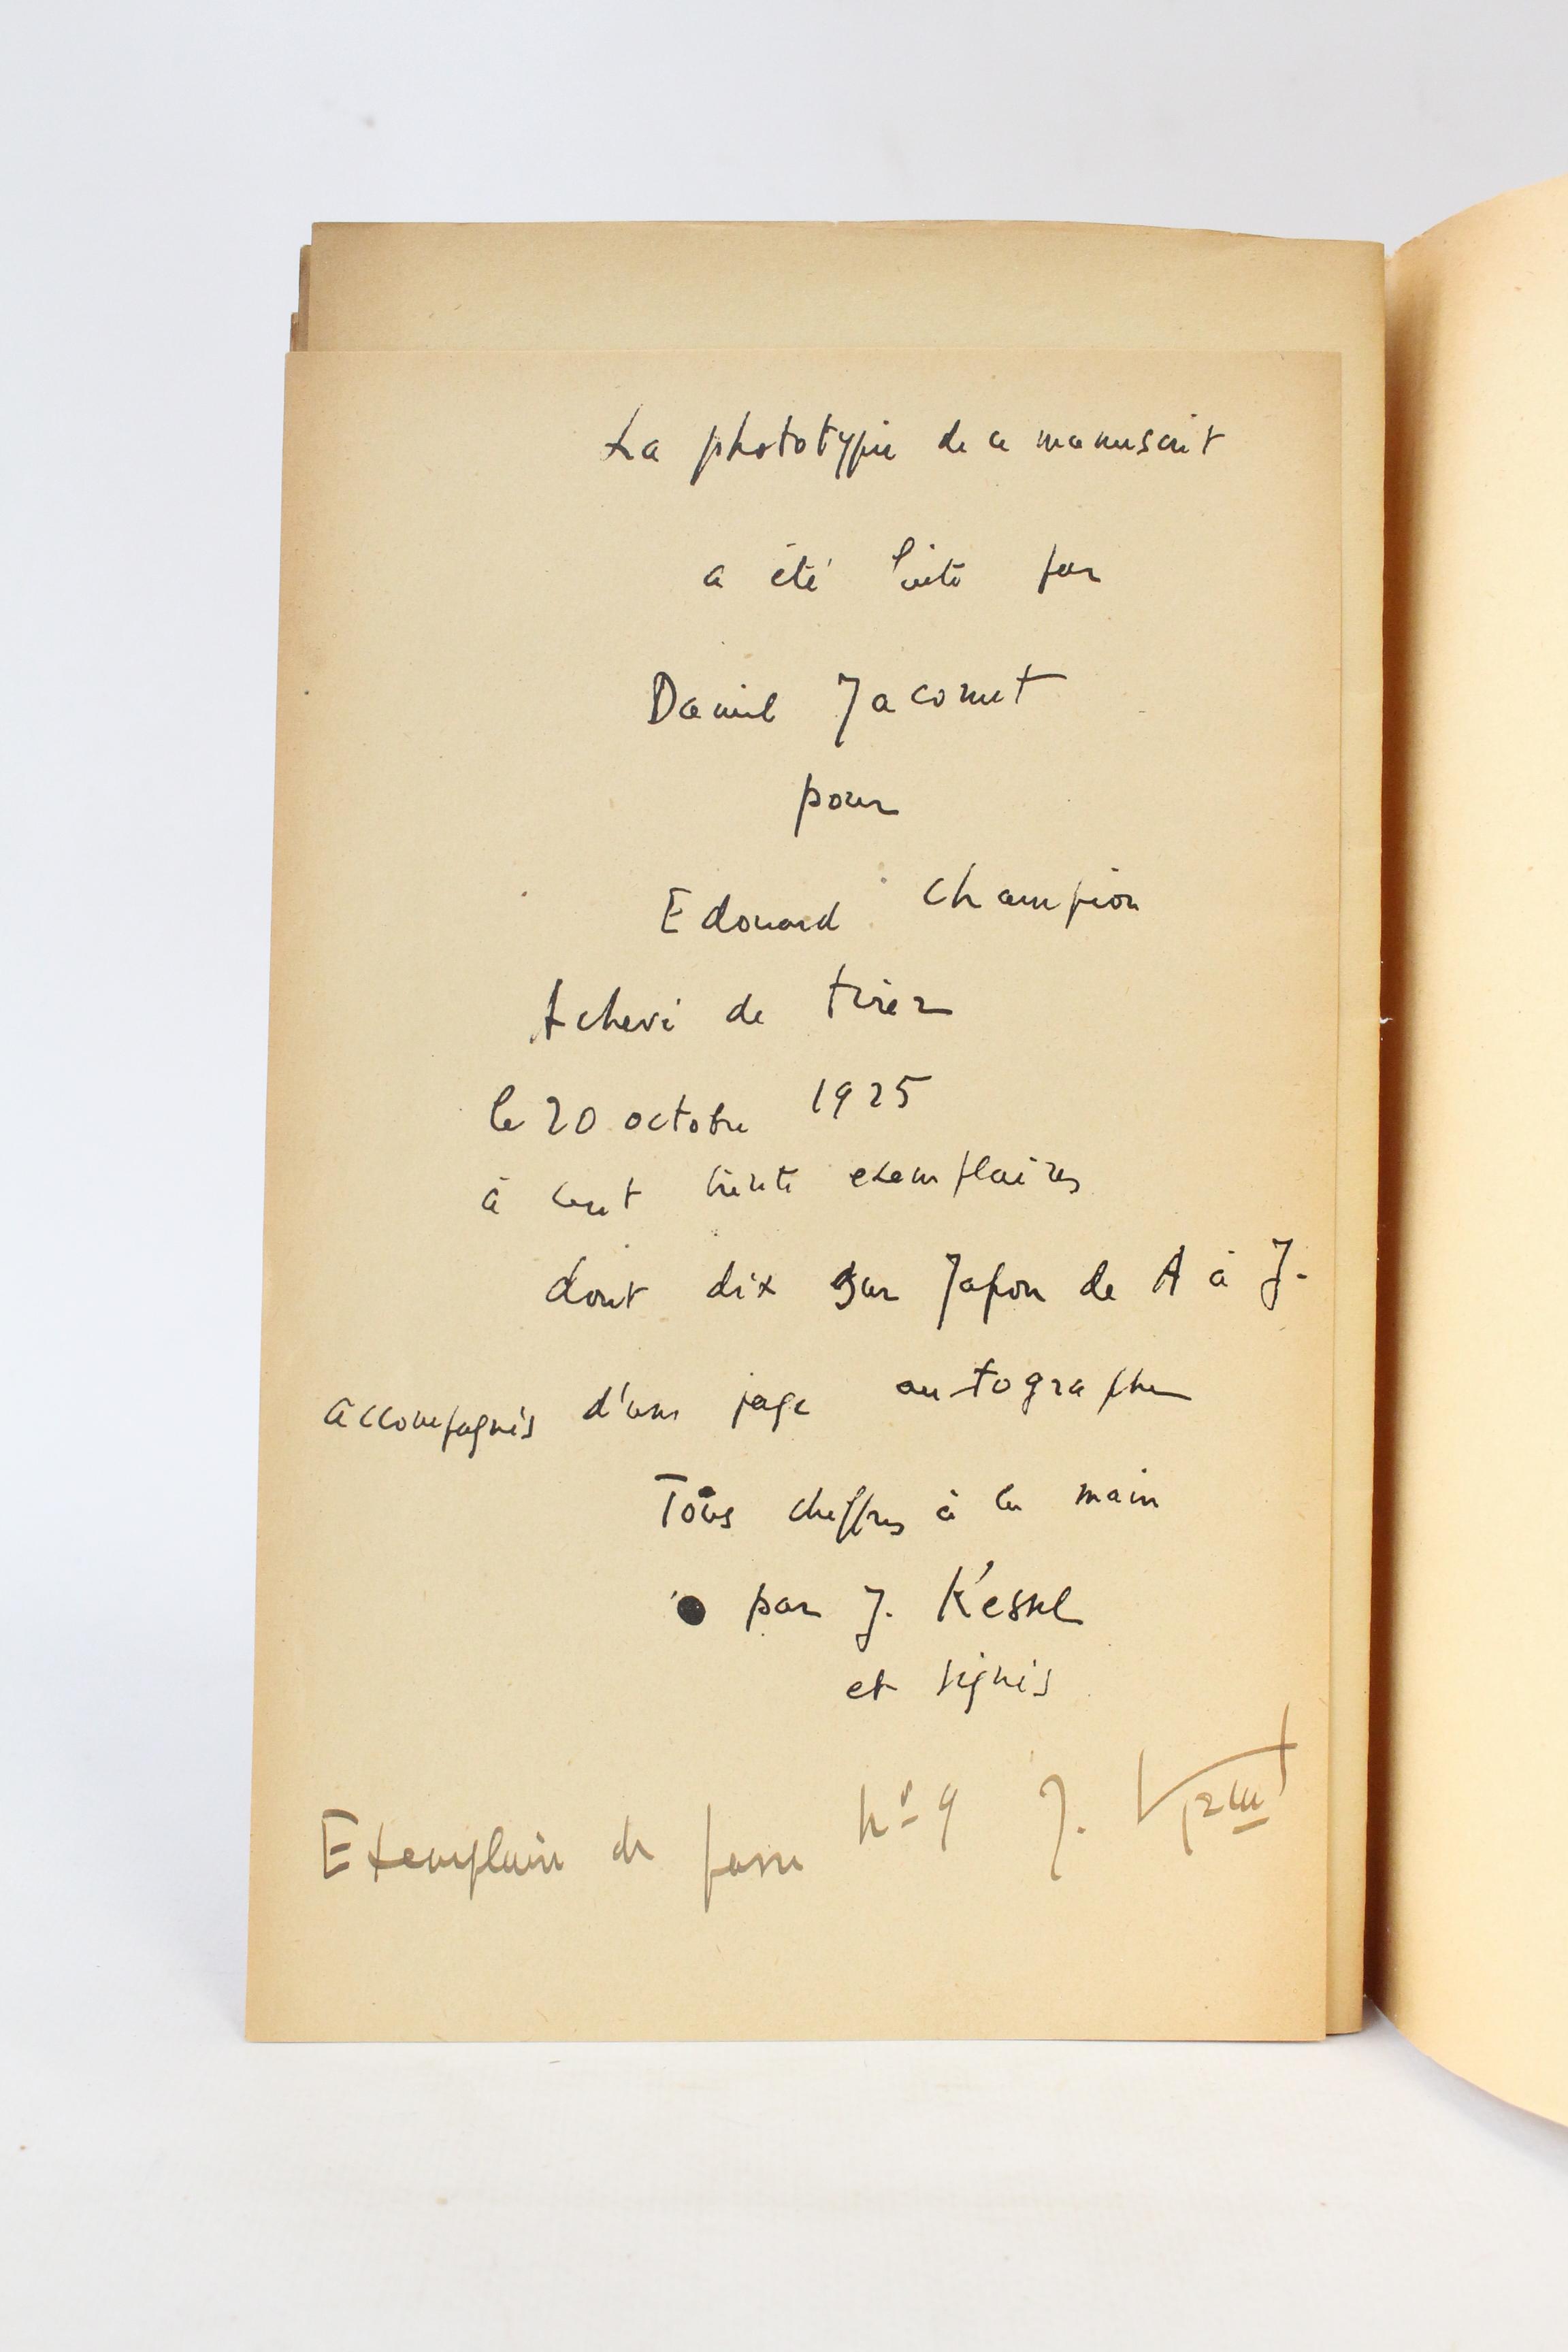 La phototypie de ce manuscrit
a été faite par
Daniel Jacomet
pour
Edouard Champion
Achevé de tirer
le 20 octobre 1925
à cent trente exemplaires
dont dix sur Japon de A à J.
accompagnés d'une page autographe
Tous chiffrés à la main
par J. Kessel
et signés
Exemplaire de passe n° 9 J. Kessel